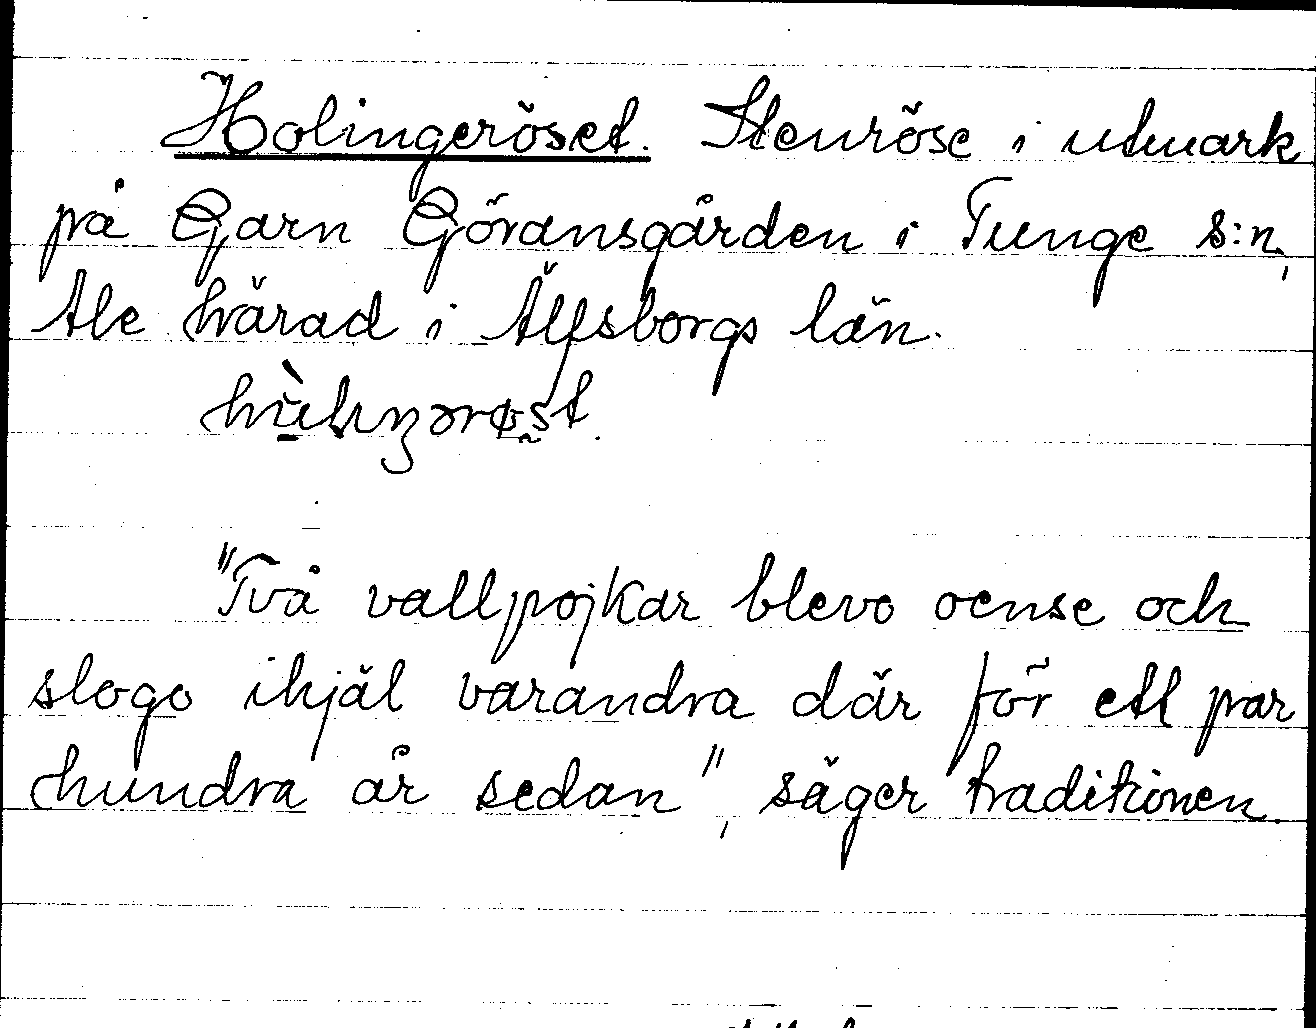 Holingeröset. Stenröse i utmark
på Garn Göransgården i Tunge s:n,
Ale härad i Älfsborgs län.
"Två vallpojkar blevo oense och
slogo ihjäl varandra där för ett par
hundra år sedan", säger traditionen.